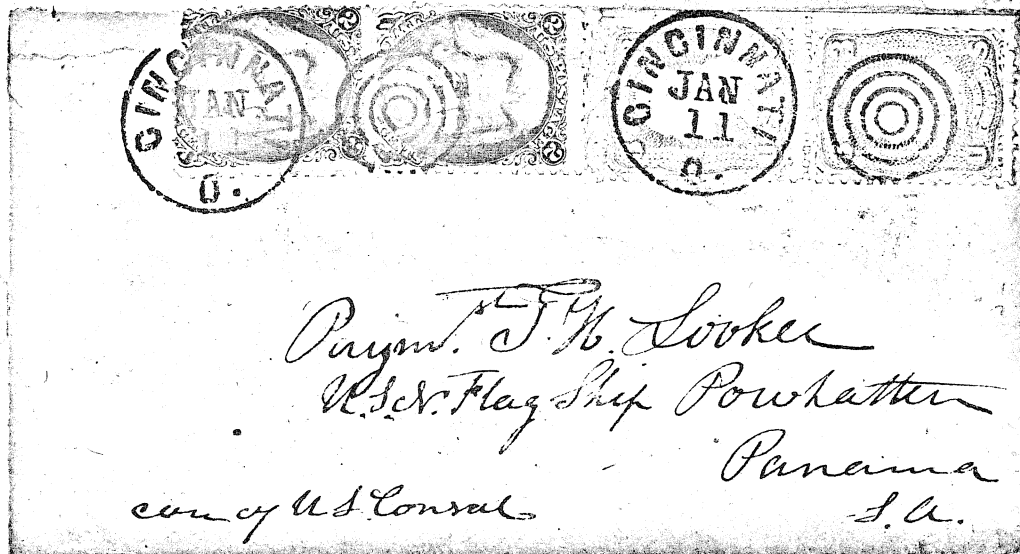 CINCINNATI
JAN
11
O.
CINCINNATI
JAN
11
O.
Paym^r. T. H. Looker
U.S.N. Flag Ship Powhatten
Panama
S. A.
care of U S Consul